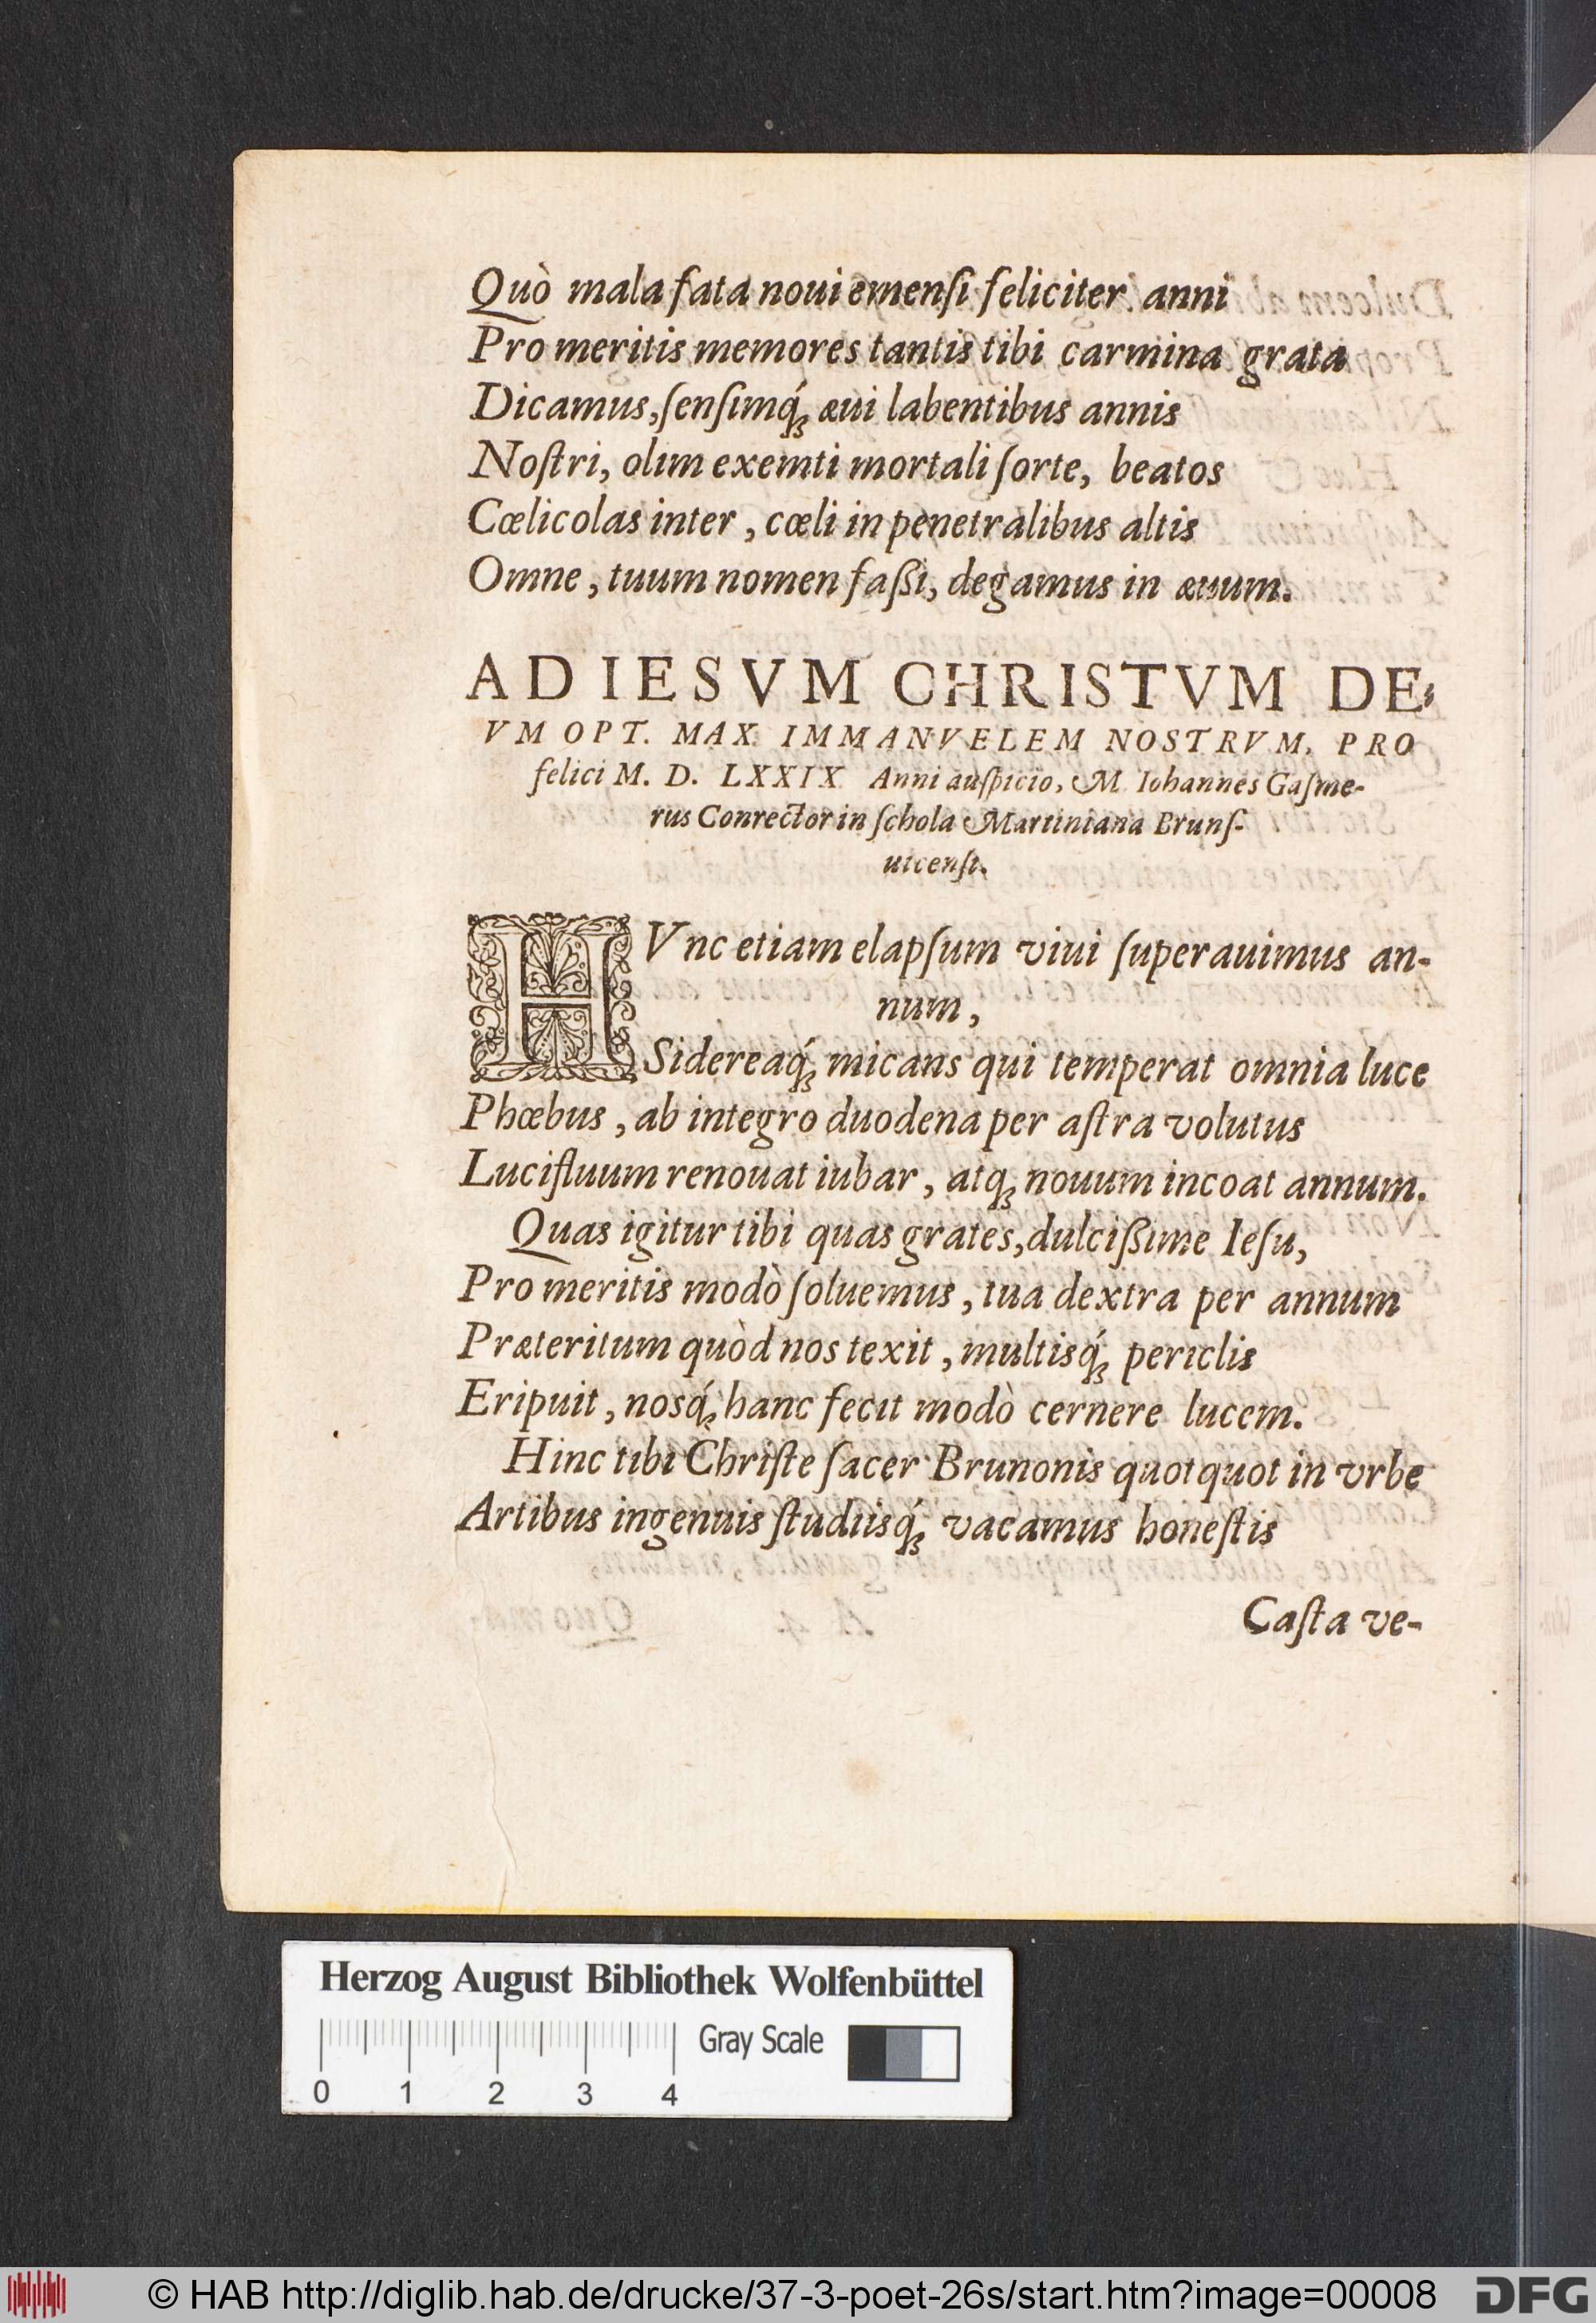 Quò mala fata noui emenſi feliciter anni
Pro meritis memores tantis tibi carmina grata
Dicamus, ſenſimq́ꝫ æui labentibus annis
Noſtri, olim exemti mortali ſorte, beatos
Cœlicolas inter, cœli in penetralibus altis
Omne, tuum nomen faßi, degamus in æuum.
AD IESVM CHRISTVM DE-
VM OPT. MAX. IMMANVELEM NOSTRVM, PRO
felici M. D. LXXIX Anni auſpicio, M. Iohannes Gaſme-
rus Conrector in ſchola Martiniana Brunſ-
uicenſi.
HVnc etiam elapſum viui ſuperauimus an-
num,
Sidereaq́ꝫ micans qui temperat omnia luce
Phœbus, ab integro duodena per aſtra volutus
Lucifluum renouat iubar, atqꝫ nouum incoat annum.
Quas igitur tibi quas grates, dulcißime Ieſu,
Pro meritis modò ſoluemus, tua dextra per annum
Præteritum quòd nos texit, multisq́ꝫ periclis
Eripuit, nosq́ꝫ hanc fecit modò cernere lucem.
Hinc tibi Chriſte ſacer Brunonis quotquot in vrbe
Artibus ingenuis ſtudiisq́ꝫ vacamus honeſtis
Caſta ve-
Herzog August Bibliothek Wolfenbüttel
Gray Scale
0 1 2 3 4
© HAB http://diglib.hab.de/drucke/37-3-poet-26s/start.htm?image=00008 DFG